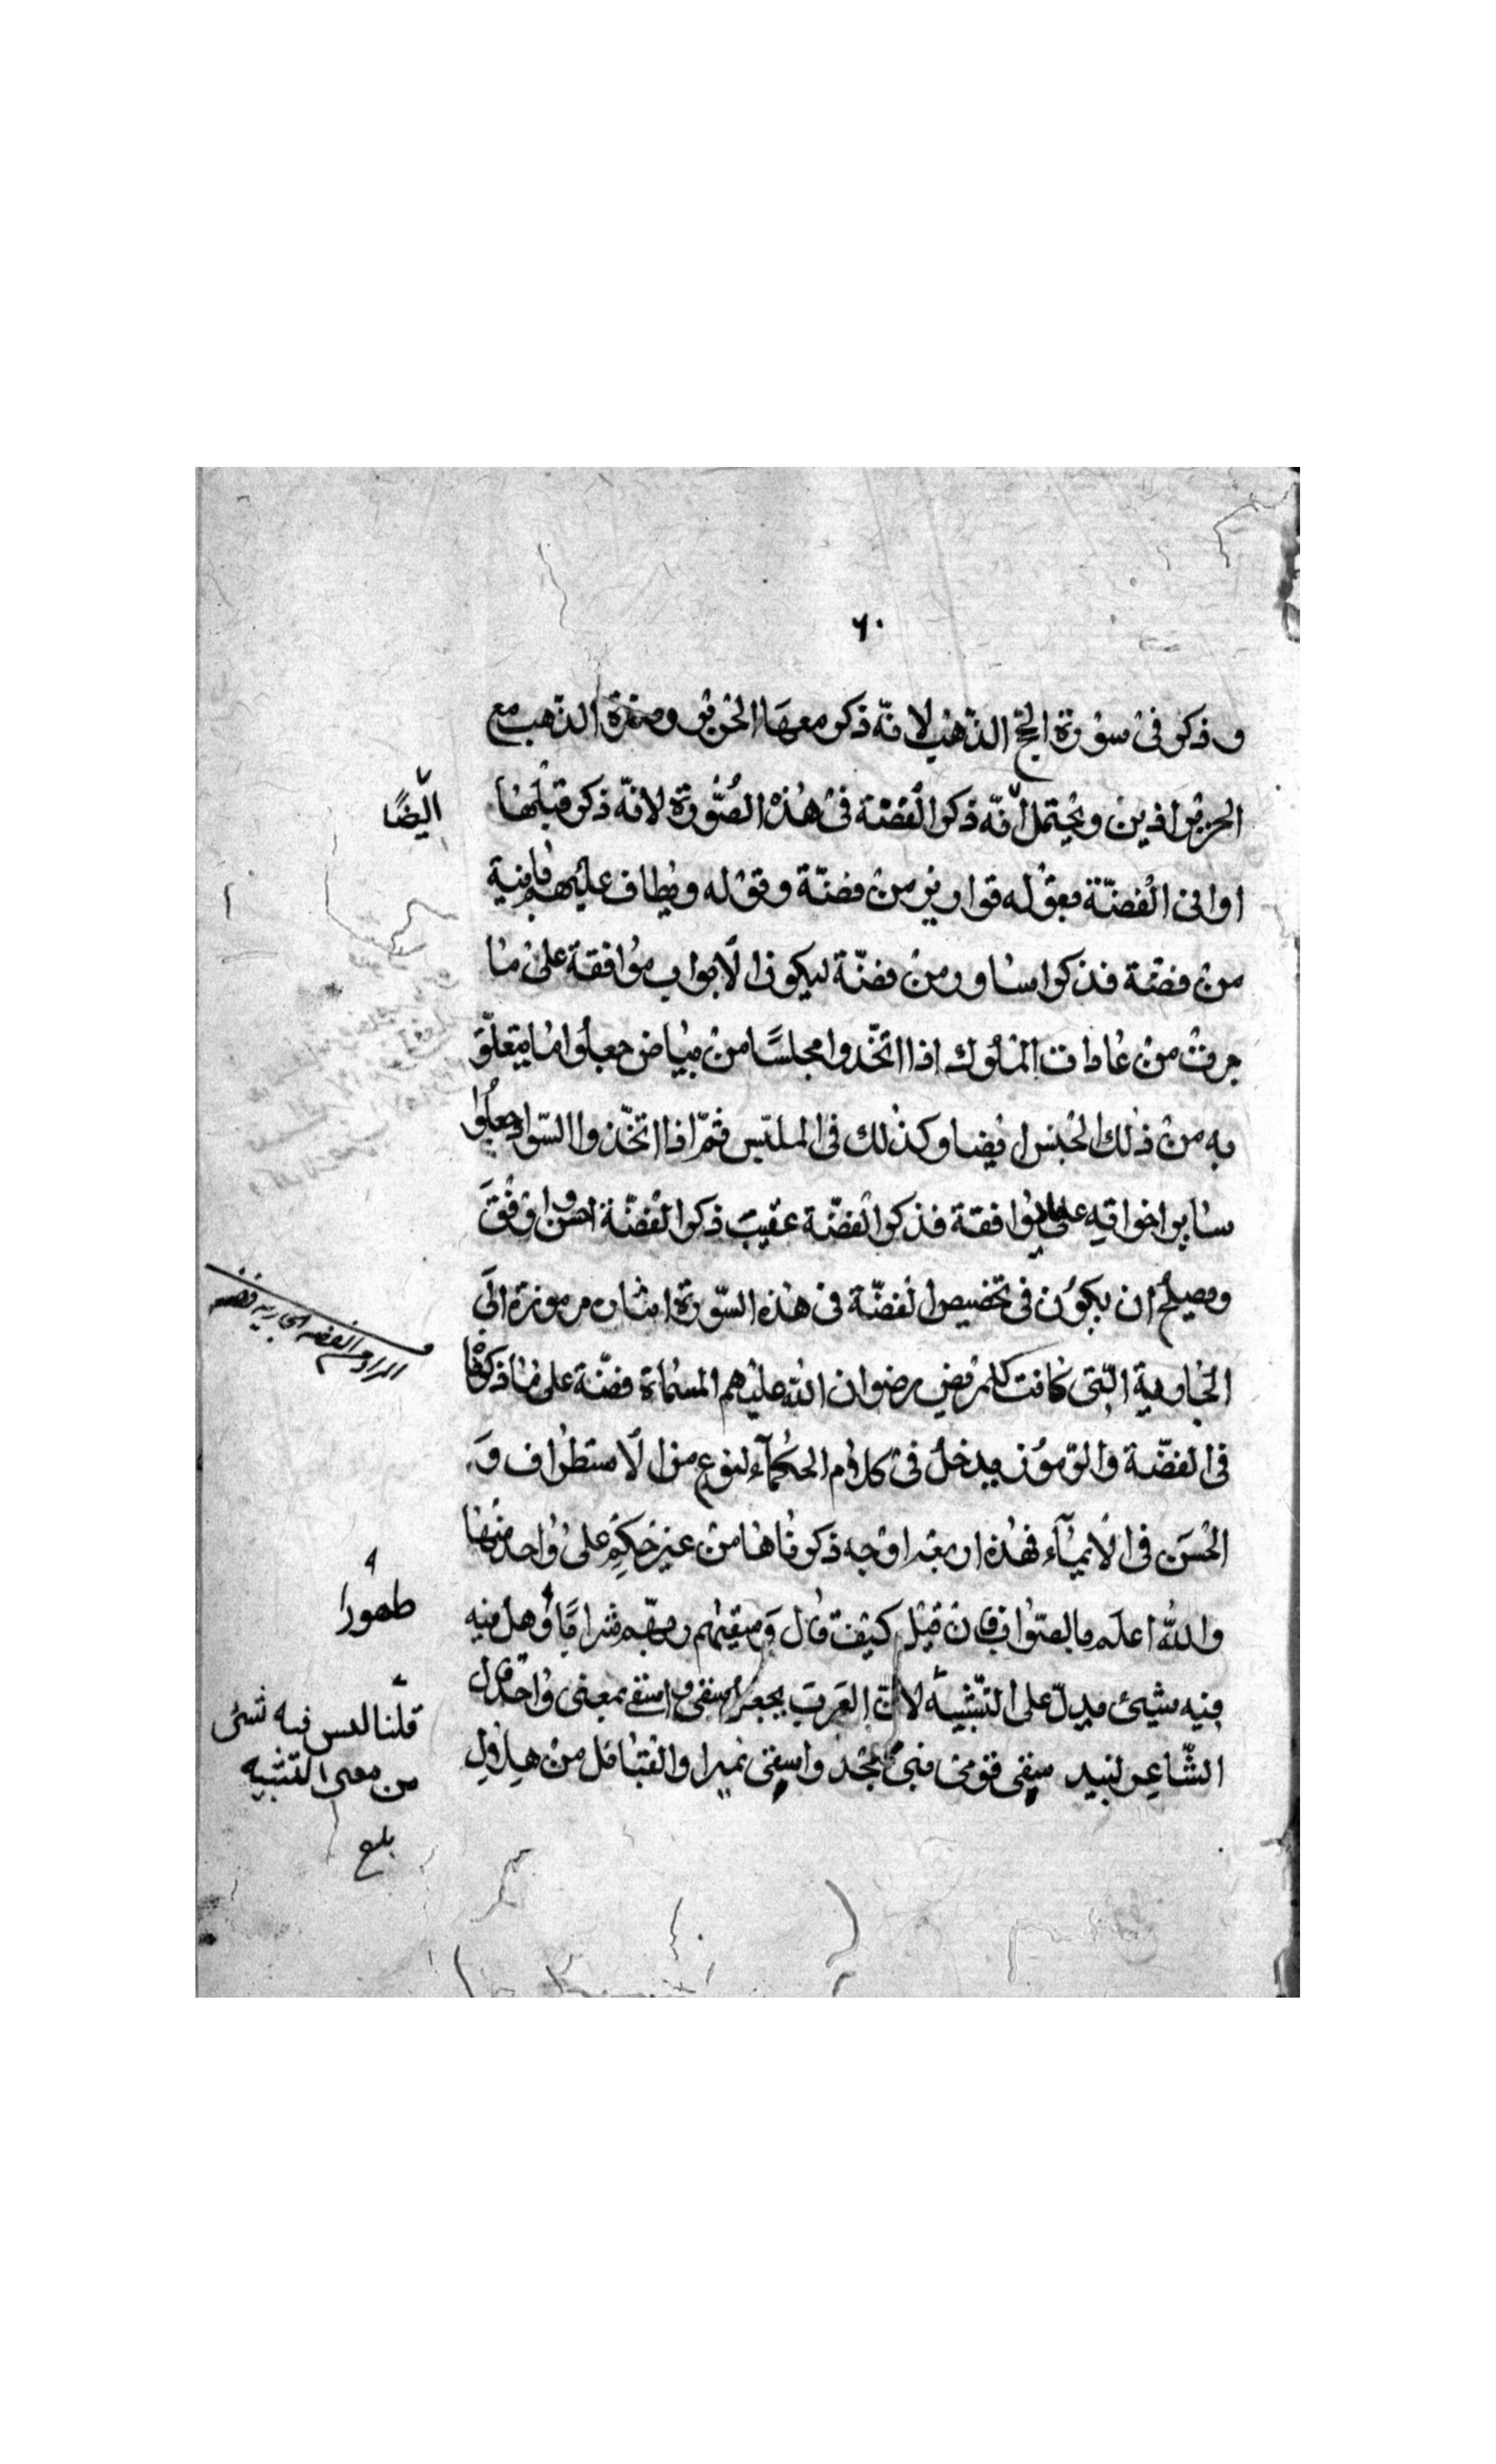 ٦٠
وذكر فى سورة الحج الذهب لانه ذكر معها الحرير وصفرة الذهب مع
الحرير ازين ويحتمل انه ذكر الفضة فى هذه الصورة لانه ذكر قبلها
ايضًا
اوانى الفضة فقوله قوارير من فضة وقوله ويطاف عليهم بآنية
من فضة فذكر اساور من فضة ليكون الابواب موافقة على ما
جرت من عادات الملوك اذا اتخذوا مجلسًا من بياض جعلوا ما يتعلق
به من ذلك الجنس ايضا وكذلك فى الملبس ثم اذا اتخذوا السواد جعلوا
ساير اخواتيه على موافقة فذكر الفضة عقيب ذكر الفضة احسن واوفق
ويصلح ان يكون فى تخصيص الفضة فى هذه السورة اشارة مرموزة الى
المراد من الفضه الجاريه فضه
الجارية التى كانت لهم رضوان الله عليهم المسماة فضة على ما ذكرنا
فى الفضة والرموز يدخل فى كلام الحكمآء لنوع من الاستطراف و
الحسن فى الايمآء فهذه اربعة اوجه ذكرناها من غير حكم على واحد منها
والله اعلم بالصواب فان قيل كيف قال وسقيهم ربهم شرابًا وهل فيه
طهورا
فيه شيئ يدل على التشبيه لان العرب يجعل سقى واسقى بمعنى واحد قال
قلنا ليس فيه شئ
من معنى التشبيه
الشاعر لبيد سقى قومى بنى مجد واسقى نميرا والقبائل من هلال
بلغ